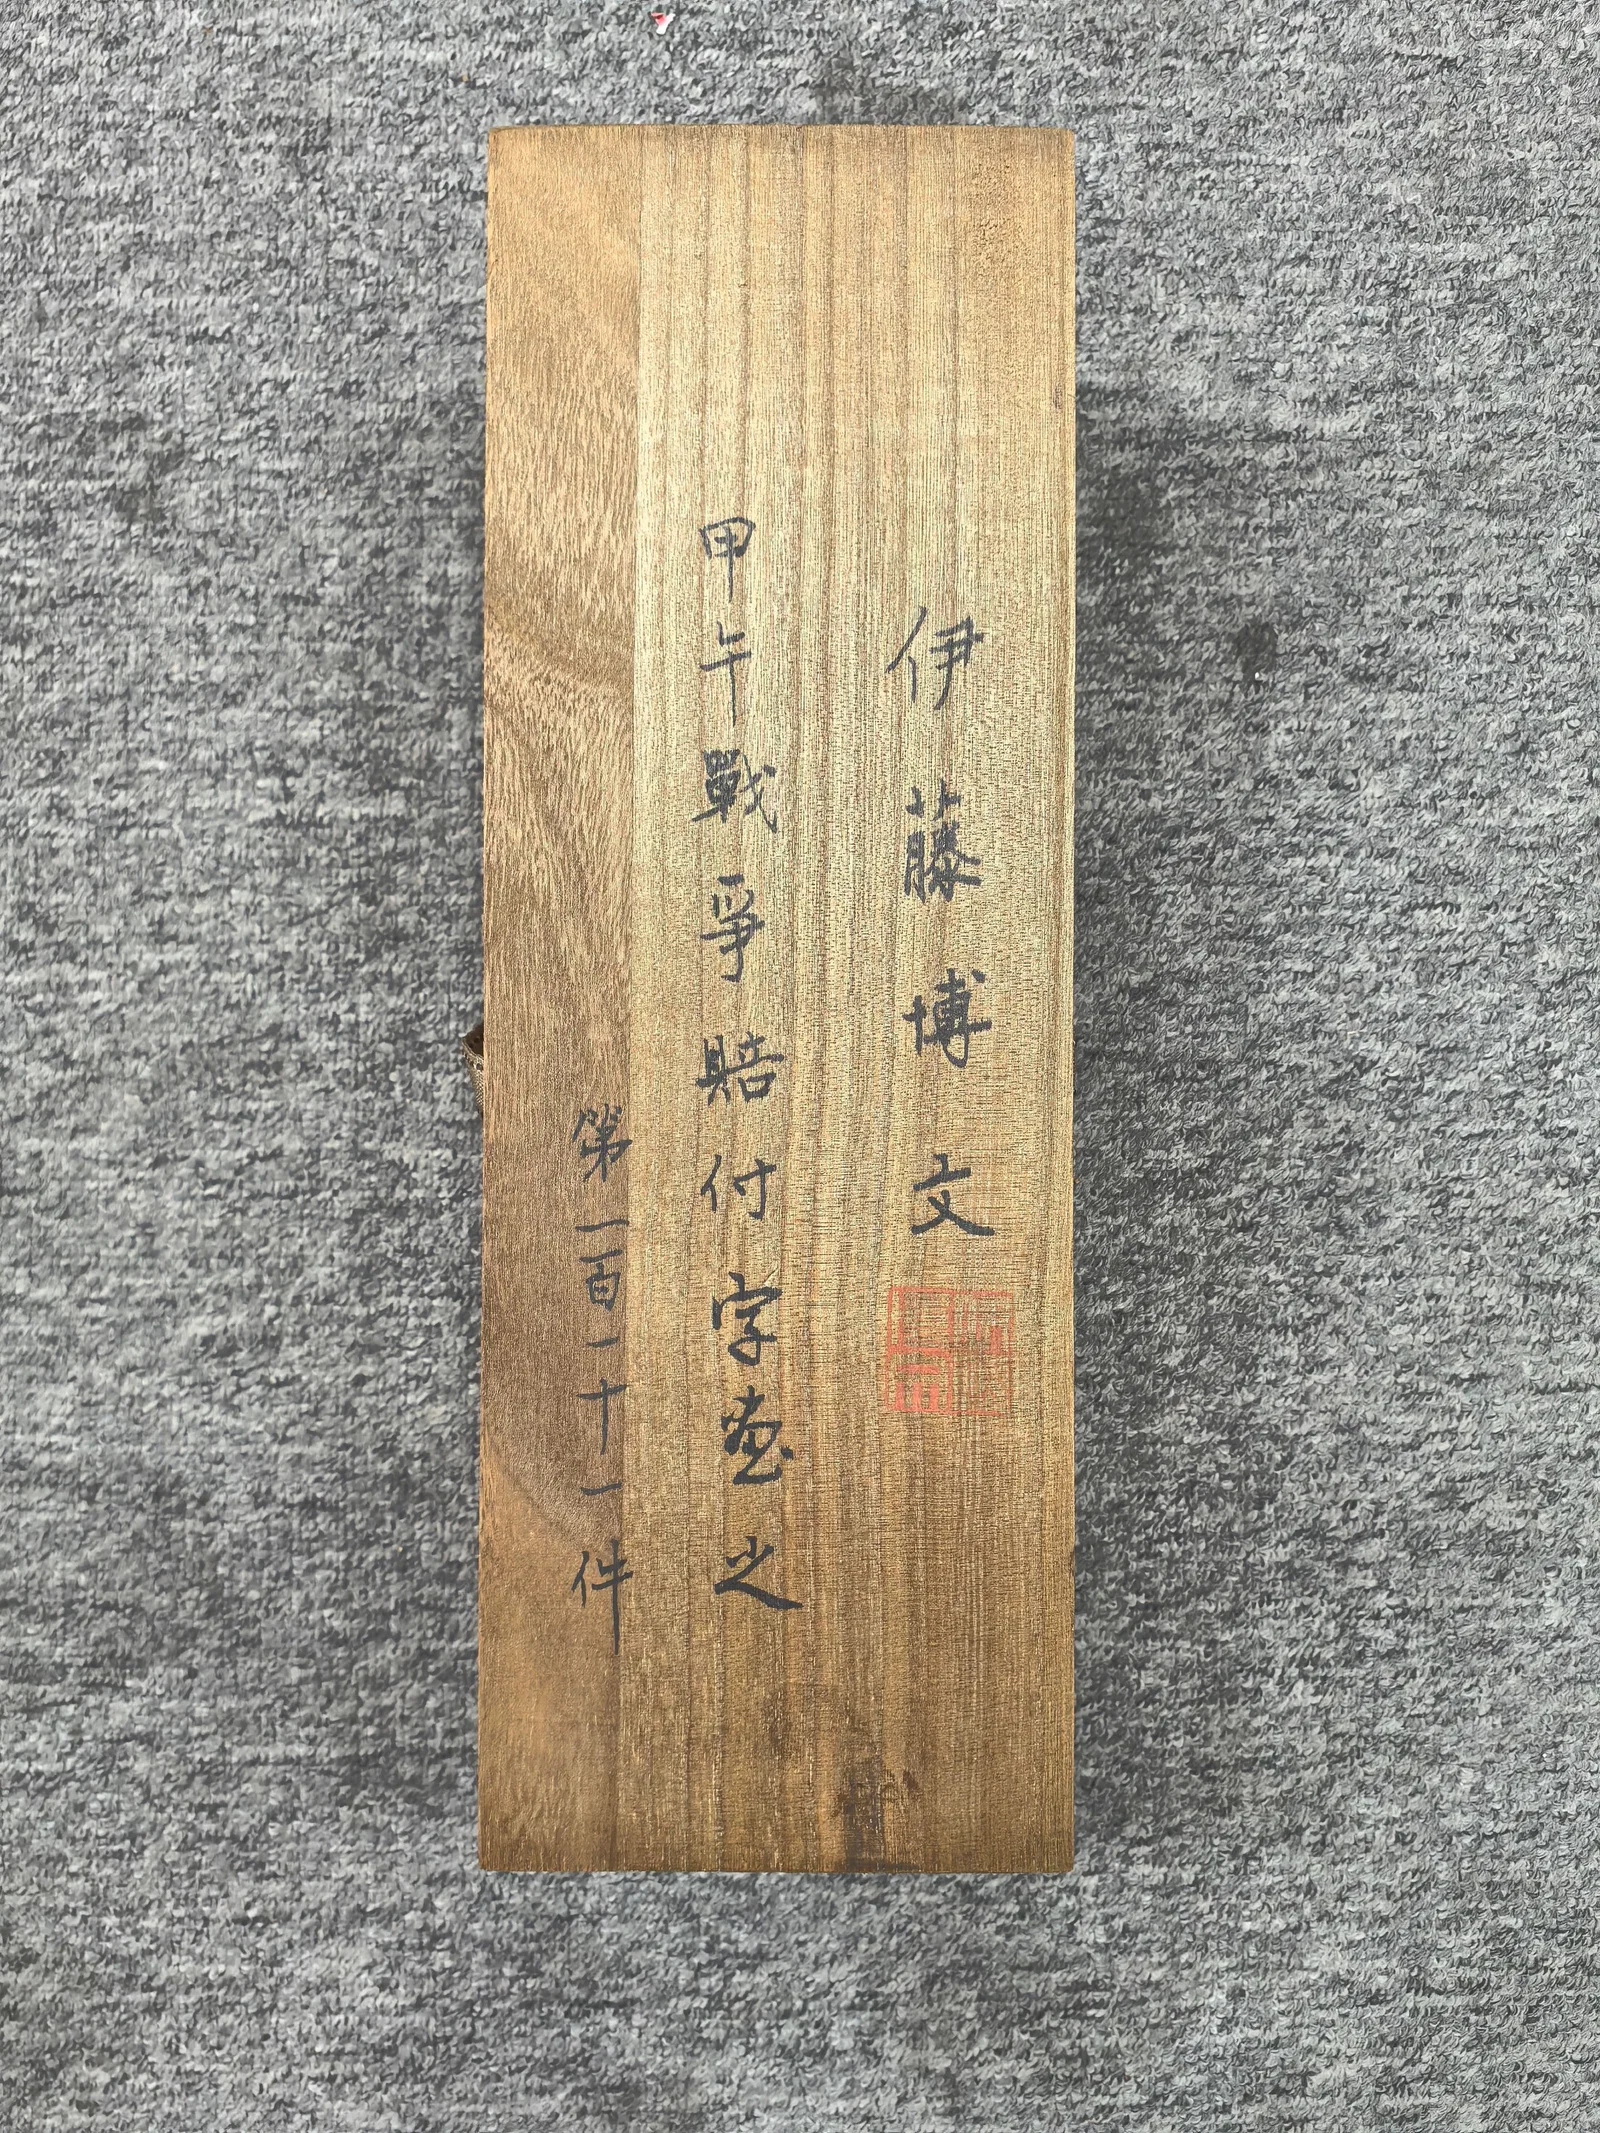 伊藤博文
甲午戰爭賠付字画之
第一百一十一件